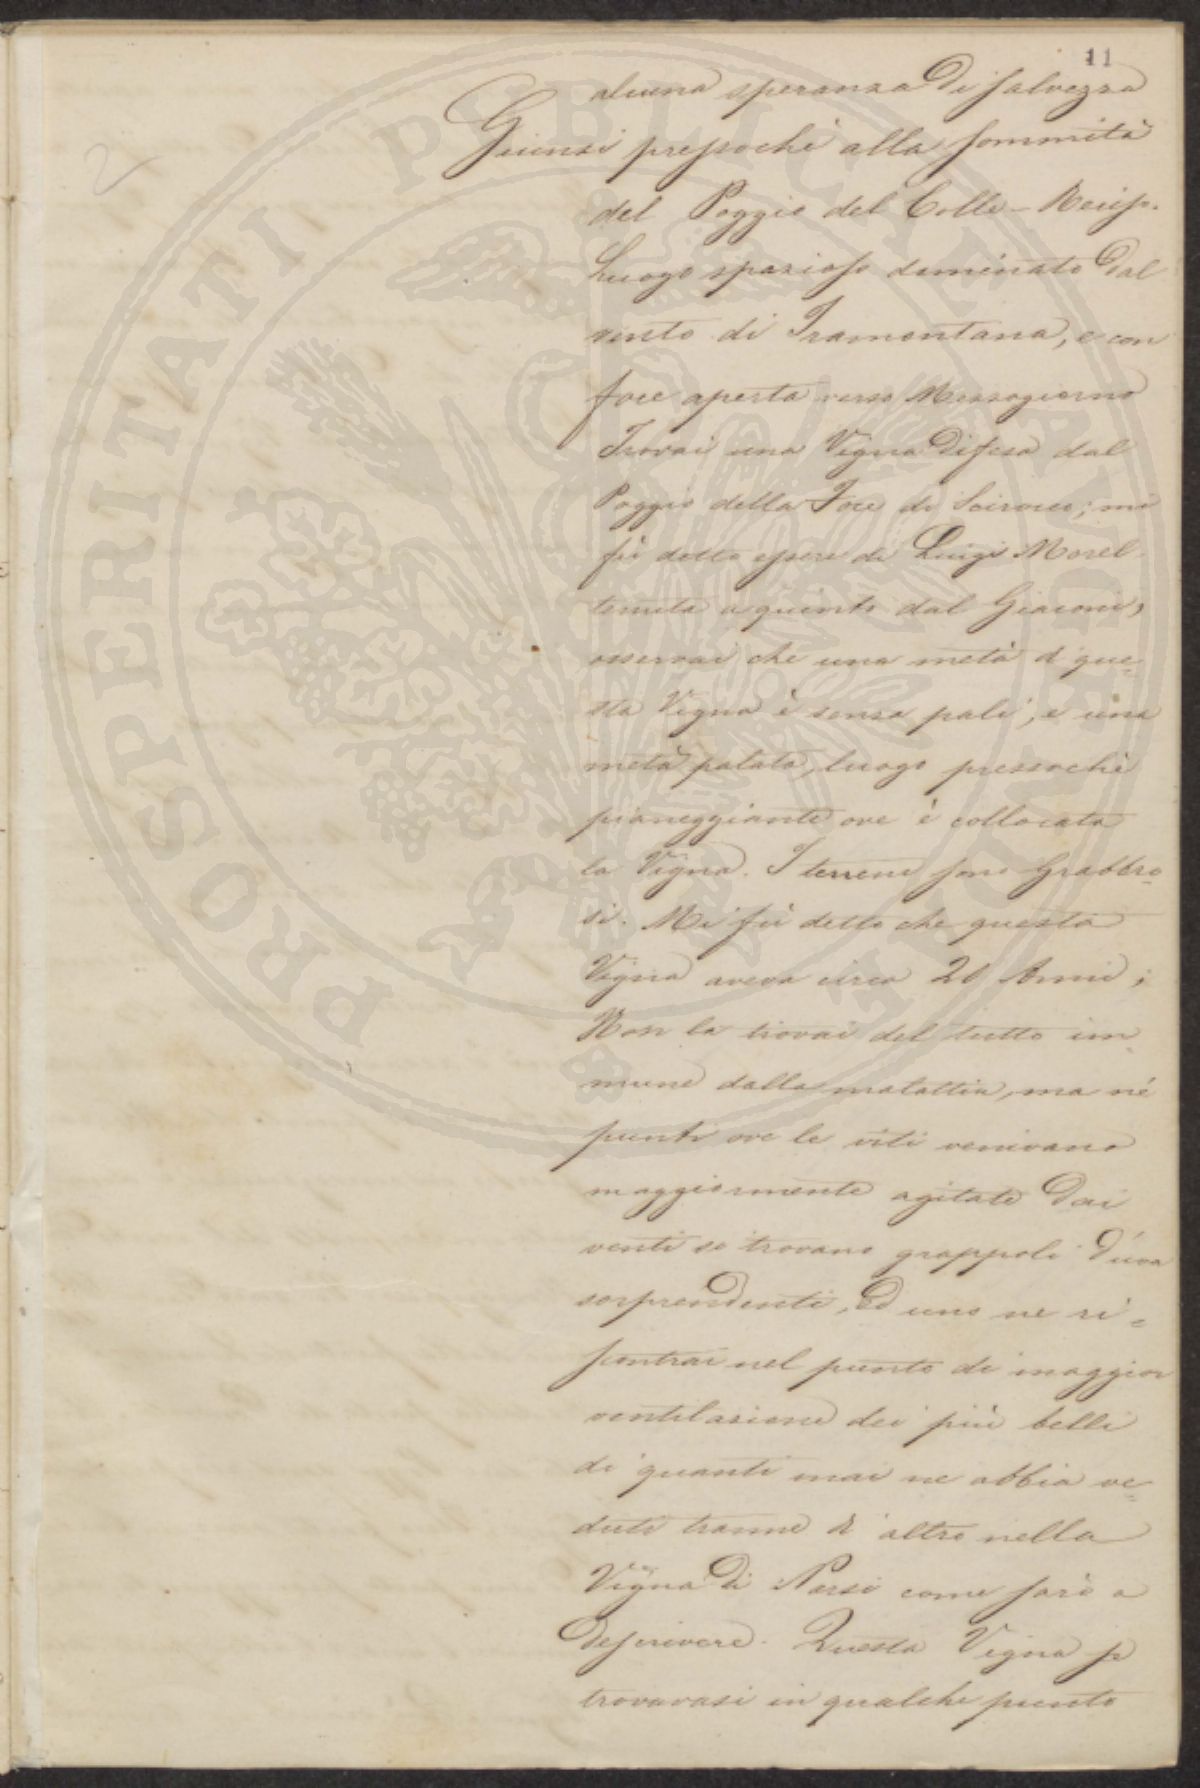 11
alcuna speranza di salvezza
Giunsi pressochè alla sommità
del Poggio del Colle-
Luogo spazioso dominato dal
vento di Tramontana, e con
foce aperta verso Mezzogiorno
Trovai una Vigna difesa dal
Poggio della Foce di Scirocco; mi
fù detto essere di Luigi Morel
tenuta a quinto dal Giaconi,
osservai che una metà di que=
sta Vigna è senza pali, e una
metà palata, luogo pressochè
pianeggiante ove è collocata
la Vigna. I terreni sono Grabbro=
si. Mi fù detto che questa
Vigna aveva circa 20 Anni;
Non la trovai del tutto im=
mune dalla malattia, ma né
punti ove le viti venivano
maggiormente agitate dai
venti si trovano grappoli d'uva
sorprendenti, Ed uno ne ri=
scontrai nel punto di maggior
ventilazione dei più belli
di quanti mai ne abbia ve=
duti tranne d'altro nella
Vigna di come farò a
descrivere. Questa Vigna p
trovavasi in qualche punto
PROSPERITATI PUBLICAE AUGENDAE